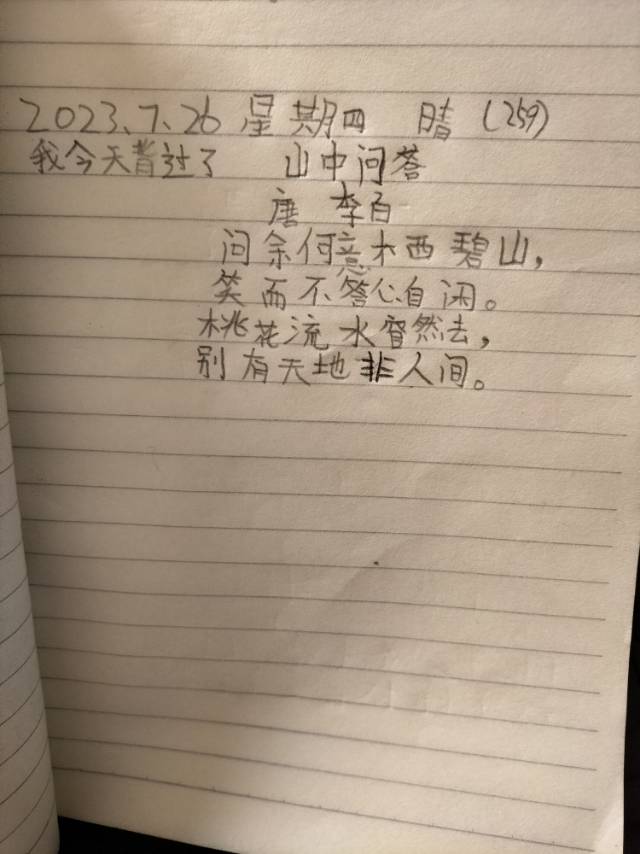 2023、7、26 星期四 晴 (259)
我今天背过了 山中问答
唐 李白
问余何意木西碧山,
笑而不答心自闲。
桃花流水窅然去,
别有天地非人间。